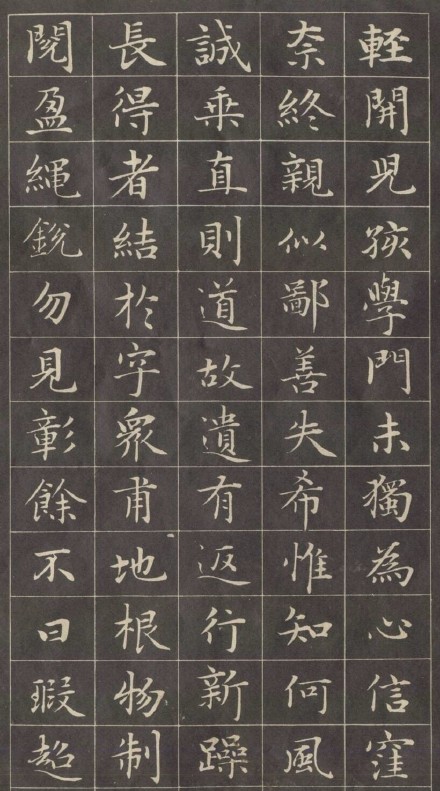 輕開兒孩學門未獨為心信窪
奈終親似鄙善失希惟知何風
誠乗直則道故遺有返行新躁
長得者結於字眾甫地根物制
閱盈繩銳勿見彰餘不曰瑕超